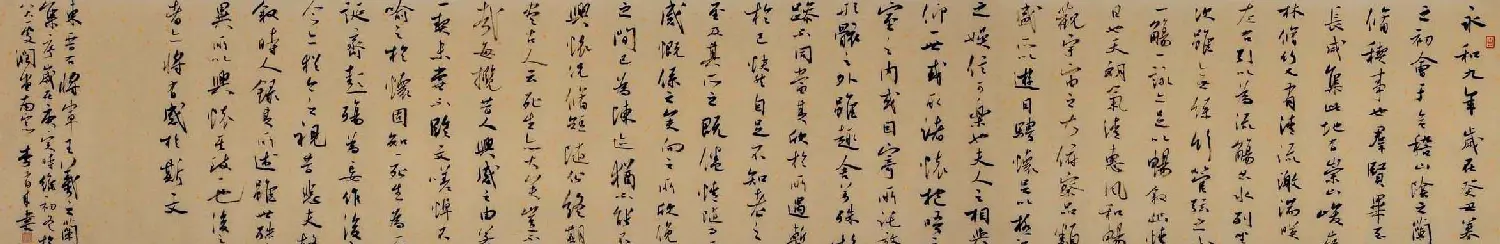 永和九年歲在癸丑暮
之初會于會稽山陰之蘭
脩禊事也群賢畢至
長咸集此地有崇山峻
林脩竹又有清流激湍映
左右引以為流觴曲水列坐
次雖無絲竹管弦之
一觴一詠亦足以暢敘幽情
日也天朗氣清惠風和暢
觀宇宙之大俯察品類
盛所以遊目騁懷足以極視
之娛信可樂也夫人之相與
仰一世或取諸懷抱悟言
室之內或因寄所託放
形骸之外雖趣舍萬殊
躁不同當其欣於所遇暫
於己快然自足不知老之
至及其所之既倦情隨事
感慨係之矣向之所欣俛
之間已為陳迹猶不能
興懷況脩短隨化終期
盡古人云死生亦大矣豈不
哉每攬昔人興感之由若
一契未嘗不臨文嗟悼不
喻之於懷固知一死生為
誕齊彭殤為妄作後
今亦猶今之視昔悲夫故
敘時人錄其所述雖世殊
異所以興懷其致一也後之
者亦將有感於斯文
東晉右將軍王羲之蘭
集序歲在庚寅維初冬於
書